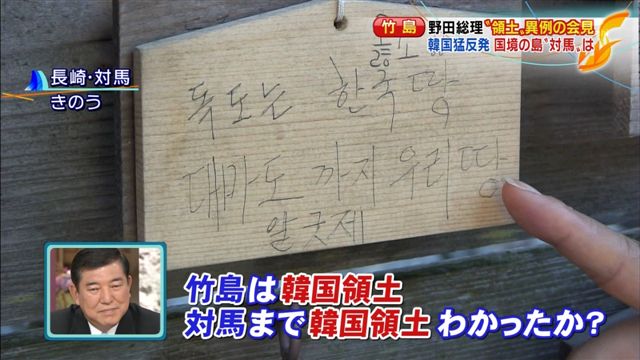 竹島
野田総理“領土”異例の会見
韓国猛反発 国境の島“対馬”は
長崎・対馬
きのう
독도는 한국땅
대마도 까지 우리땅
알굿제
竹島は韓国領土
対馬まで韓国領土 わかったか?